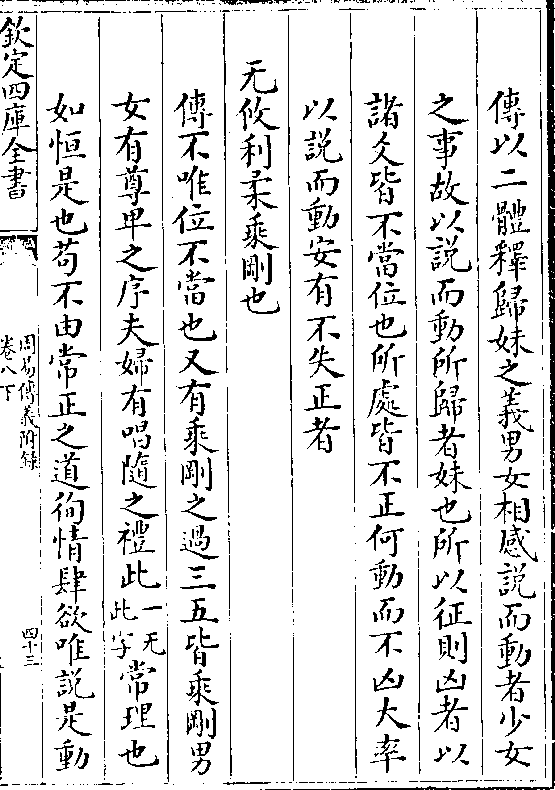 傳以二體釋歸妹之義男女相感説而動者少女
之事故以説而動所歸者妹也所以征則凶者以
諸爻皆不當位也所處皆不正何動而不凶大率
以説而動安有不失正者
无攸利柔乘剛也
傳不唯位不當也又有乘剛之過三五皆乘剛男
女有尊卑之序夫婦有唱隨之禮此一无此字常理也
如恒是也苟不由常正之道徇情肆欲唯説是動
欽定四庫全書
周易傳義附録
卷八下
四十三